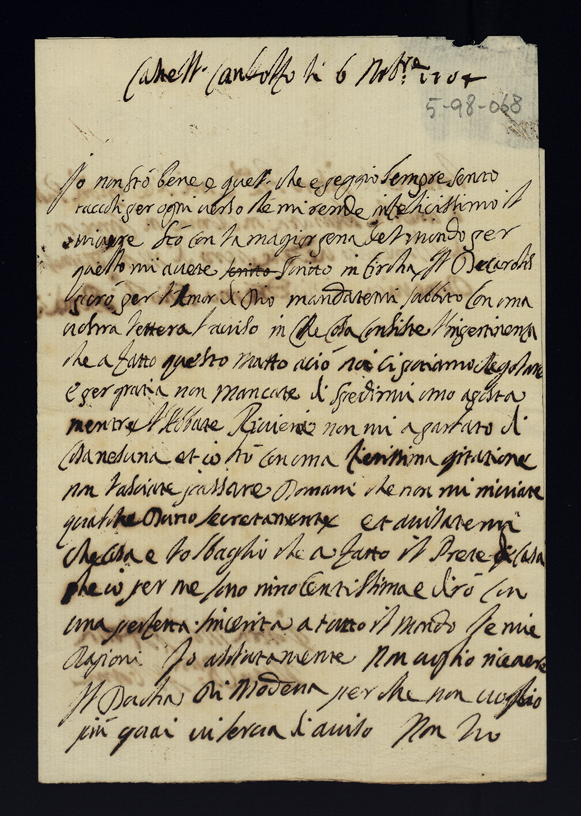 Castell Candolfo li 6 Nobre 1704
5-98-068
Io non stò bene e quel che e peggio sempre sento
raccolti per ogni verso che mi rende infelicissimo il
vivere stò con la magior pena del mondo per
quello mi avete scrito in Il Decarolis
però per l'Amor di Dio mandatemi subbito con una
vostra lettera l'aviso in che cosa consiste l'impertinenza
che a fatto questo matto aciò noi ci potiamo regolare
e per gratia non mancate di spedirmi omo aposta
mentre l'Abbate Riviera non mi a parlato di
cosa nesuna et io stò con una fierissima agitatione
non lasciate passare Domani che non mi inviate
qualche Duno secretamente et avisatemi
che cosa e lo sbaglio che a fatto il Prete di Casa
che io per me sono ninocentissima e dirò con
una perfetta sincerità a tutto il mondo le mie
Ragioni Io assolutamente non voglio ricevere
Il Ducha di Modena perche non voglio
più guai vi serva di aviso Non ho